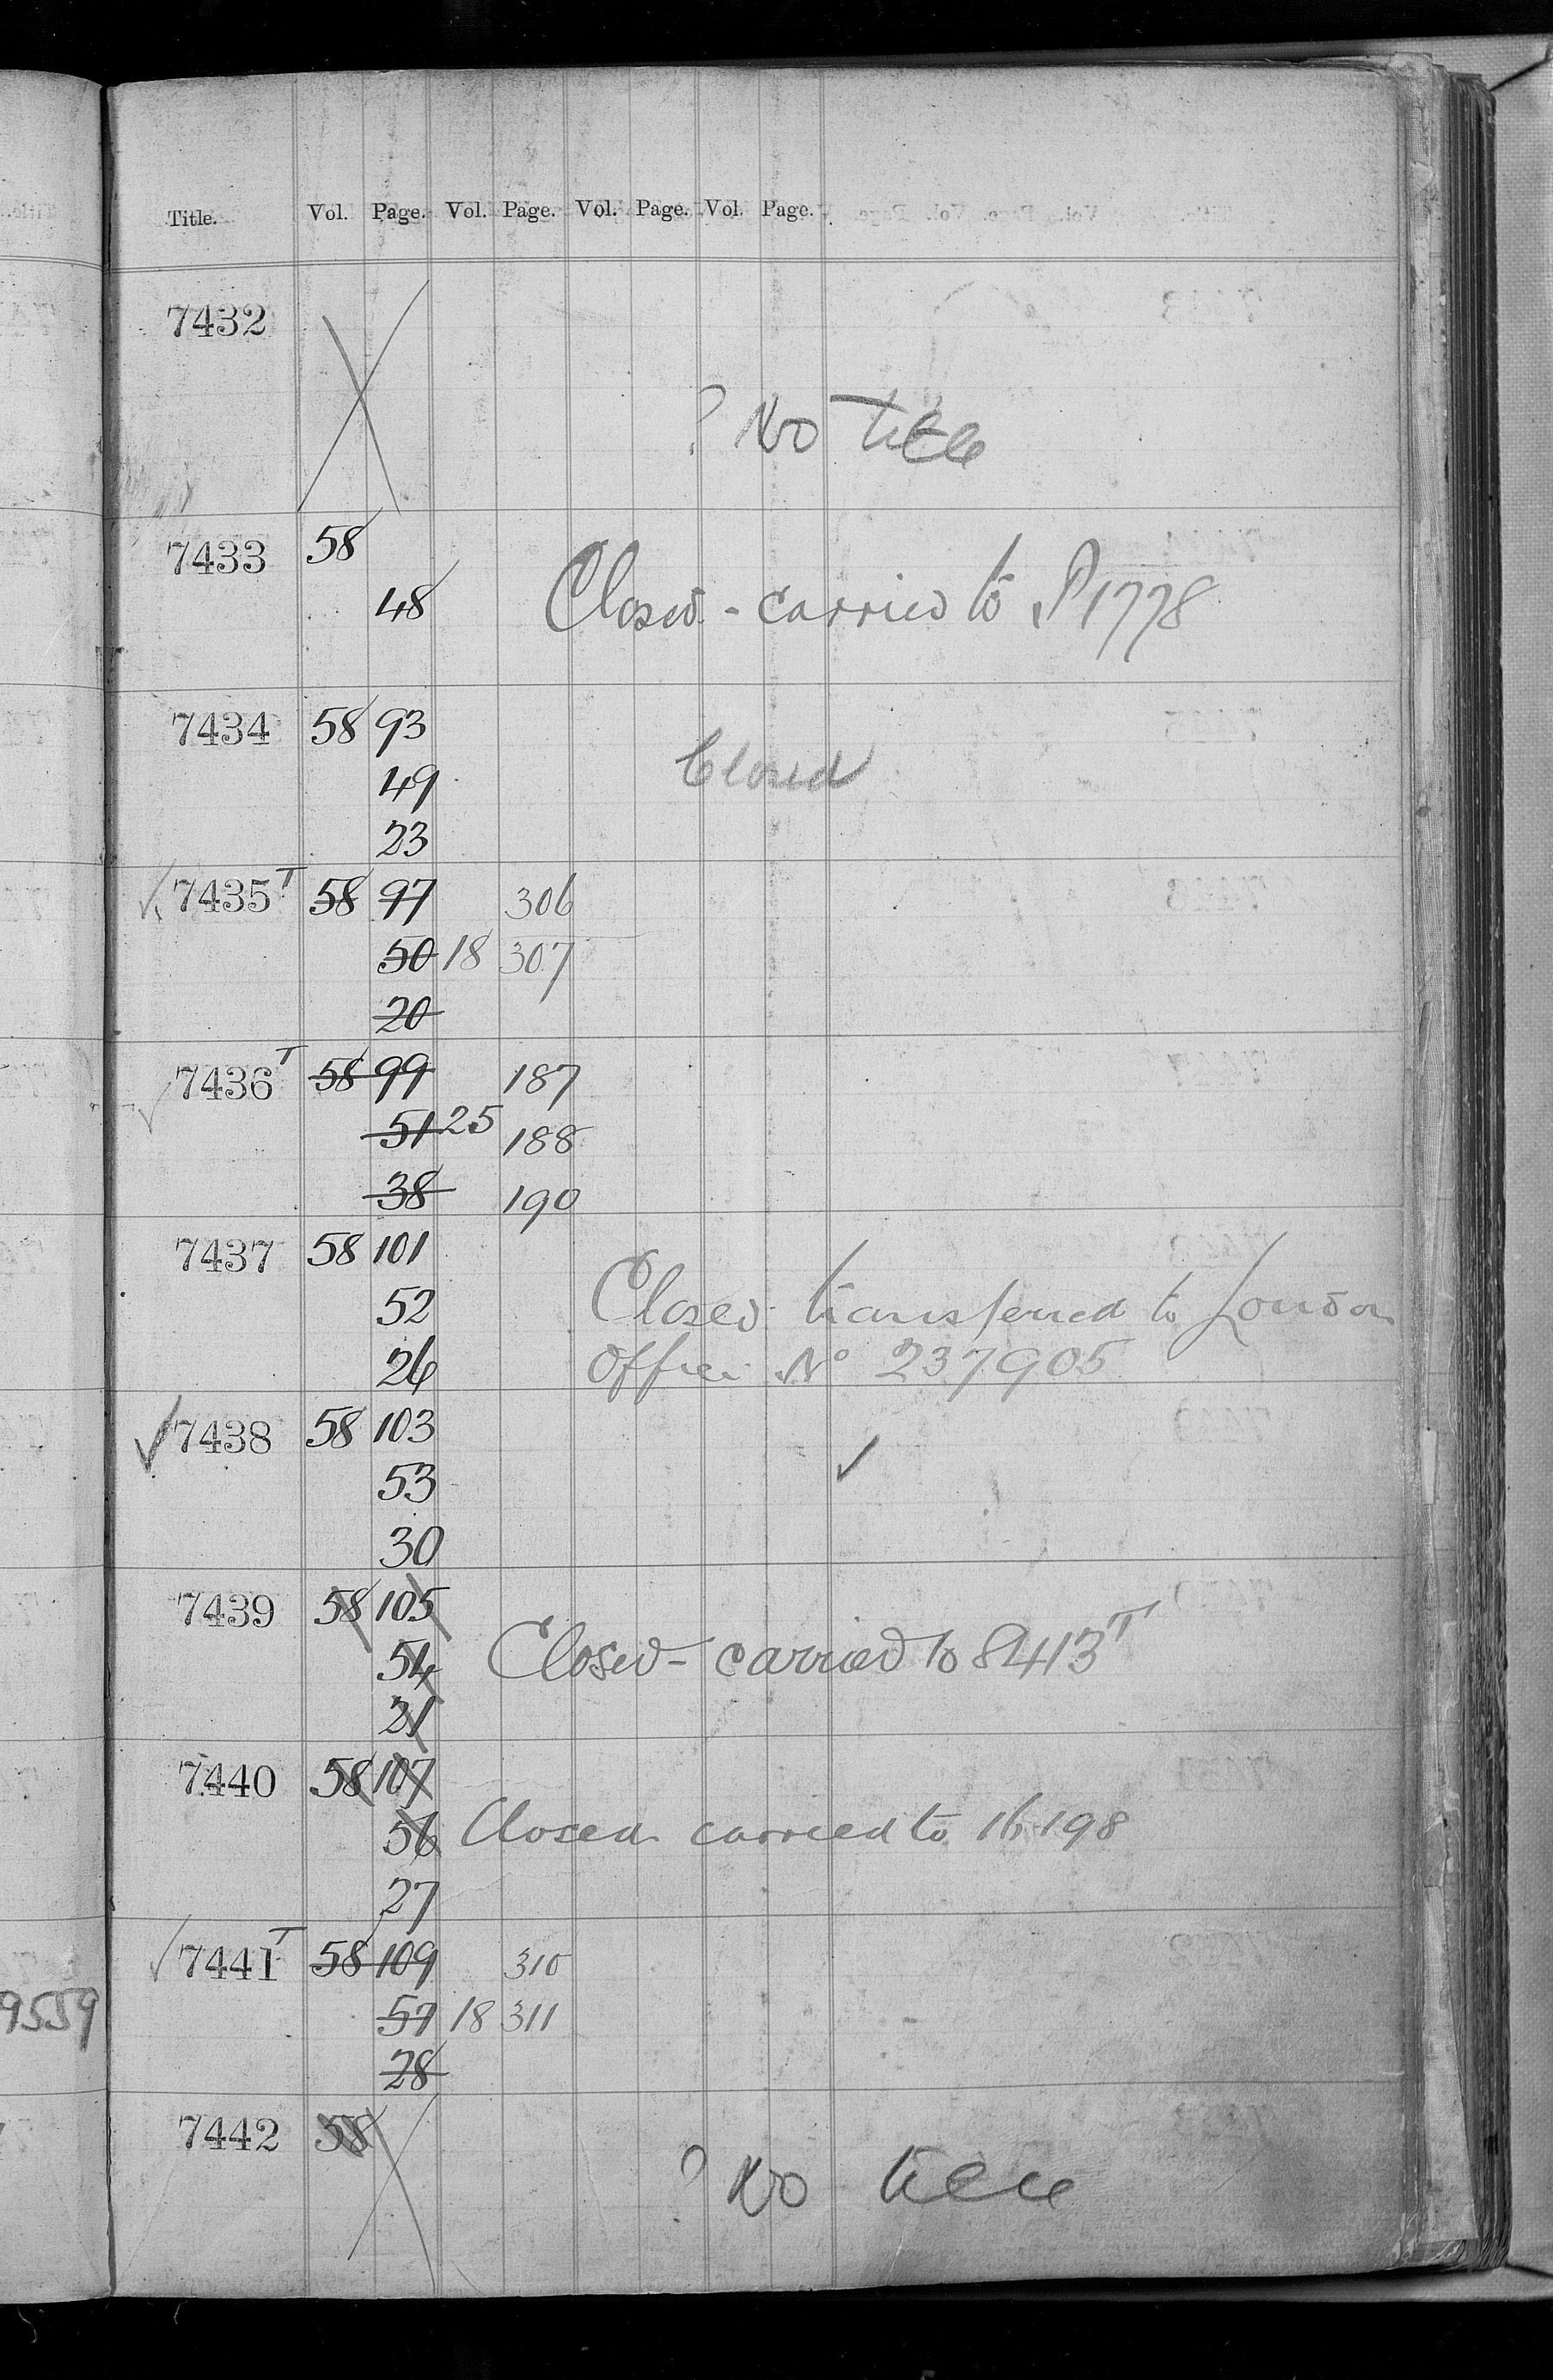 Title. Vol. Page. Vol. Page. Vol. Page. Vol. Page.
7432
? No title
7433 58
48 Closed - carried to P1778
7434 58 93
Closed
49
23
7435T 58 97 306
50 18 307
20
7436T 58 99 187
51 25 188
38 190
7437 58 101
52 Closed transferred to London
26 Office No 237905
✓ 7438 58 103
✓
53
30
7439 58 105
54 Closed - carried to 8413T
21
7440 58 107
56 Closed carried to 16198
27
7441T 58 109 310
9559
57 18 311
28
7442 58
? No title